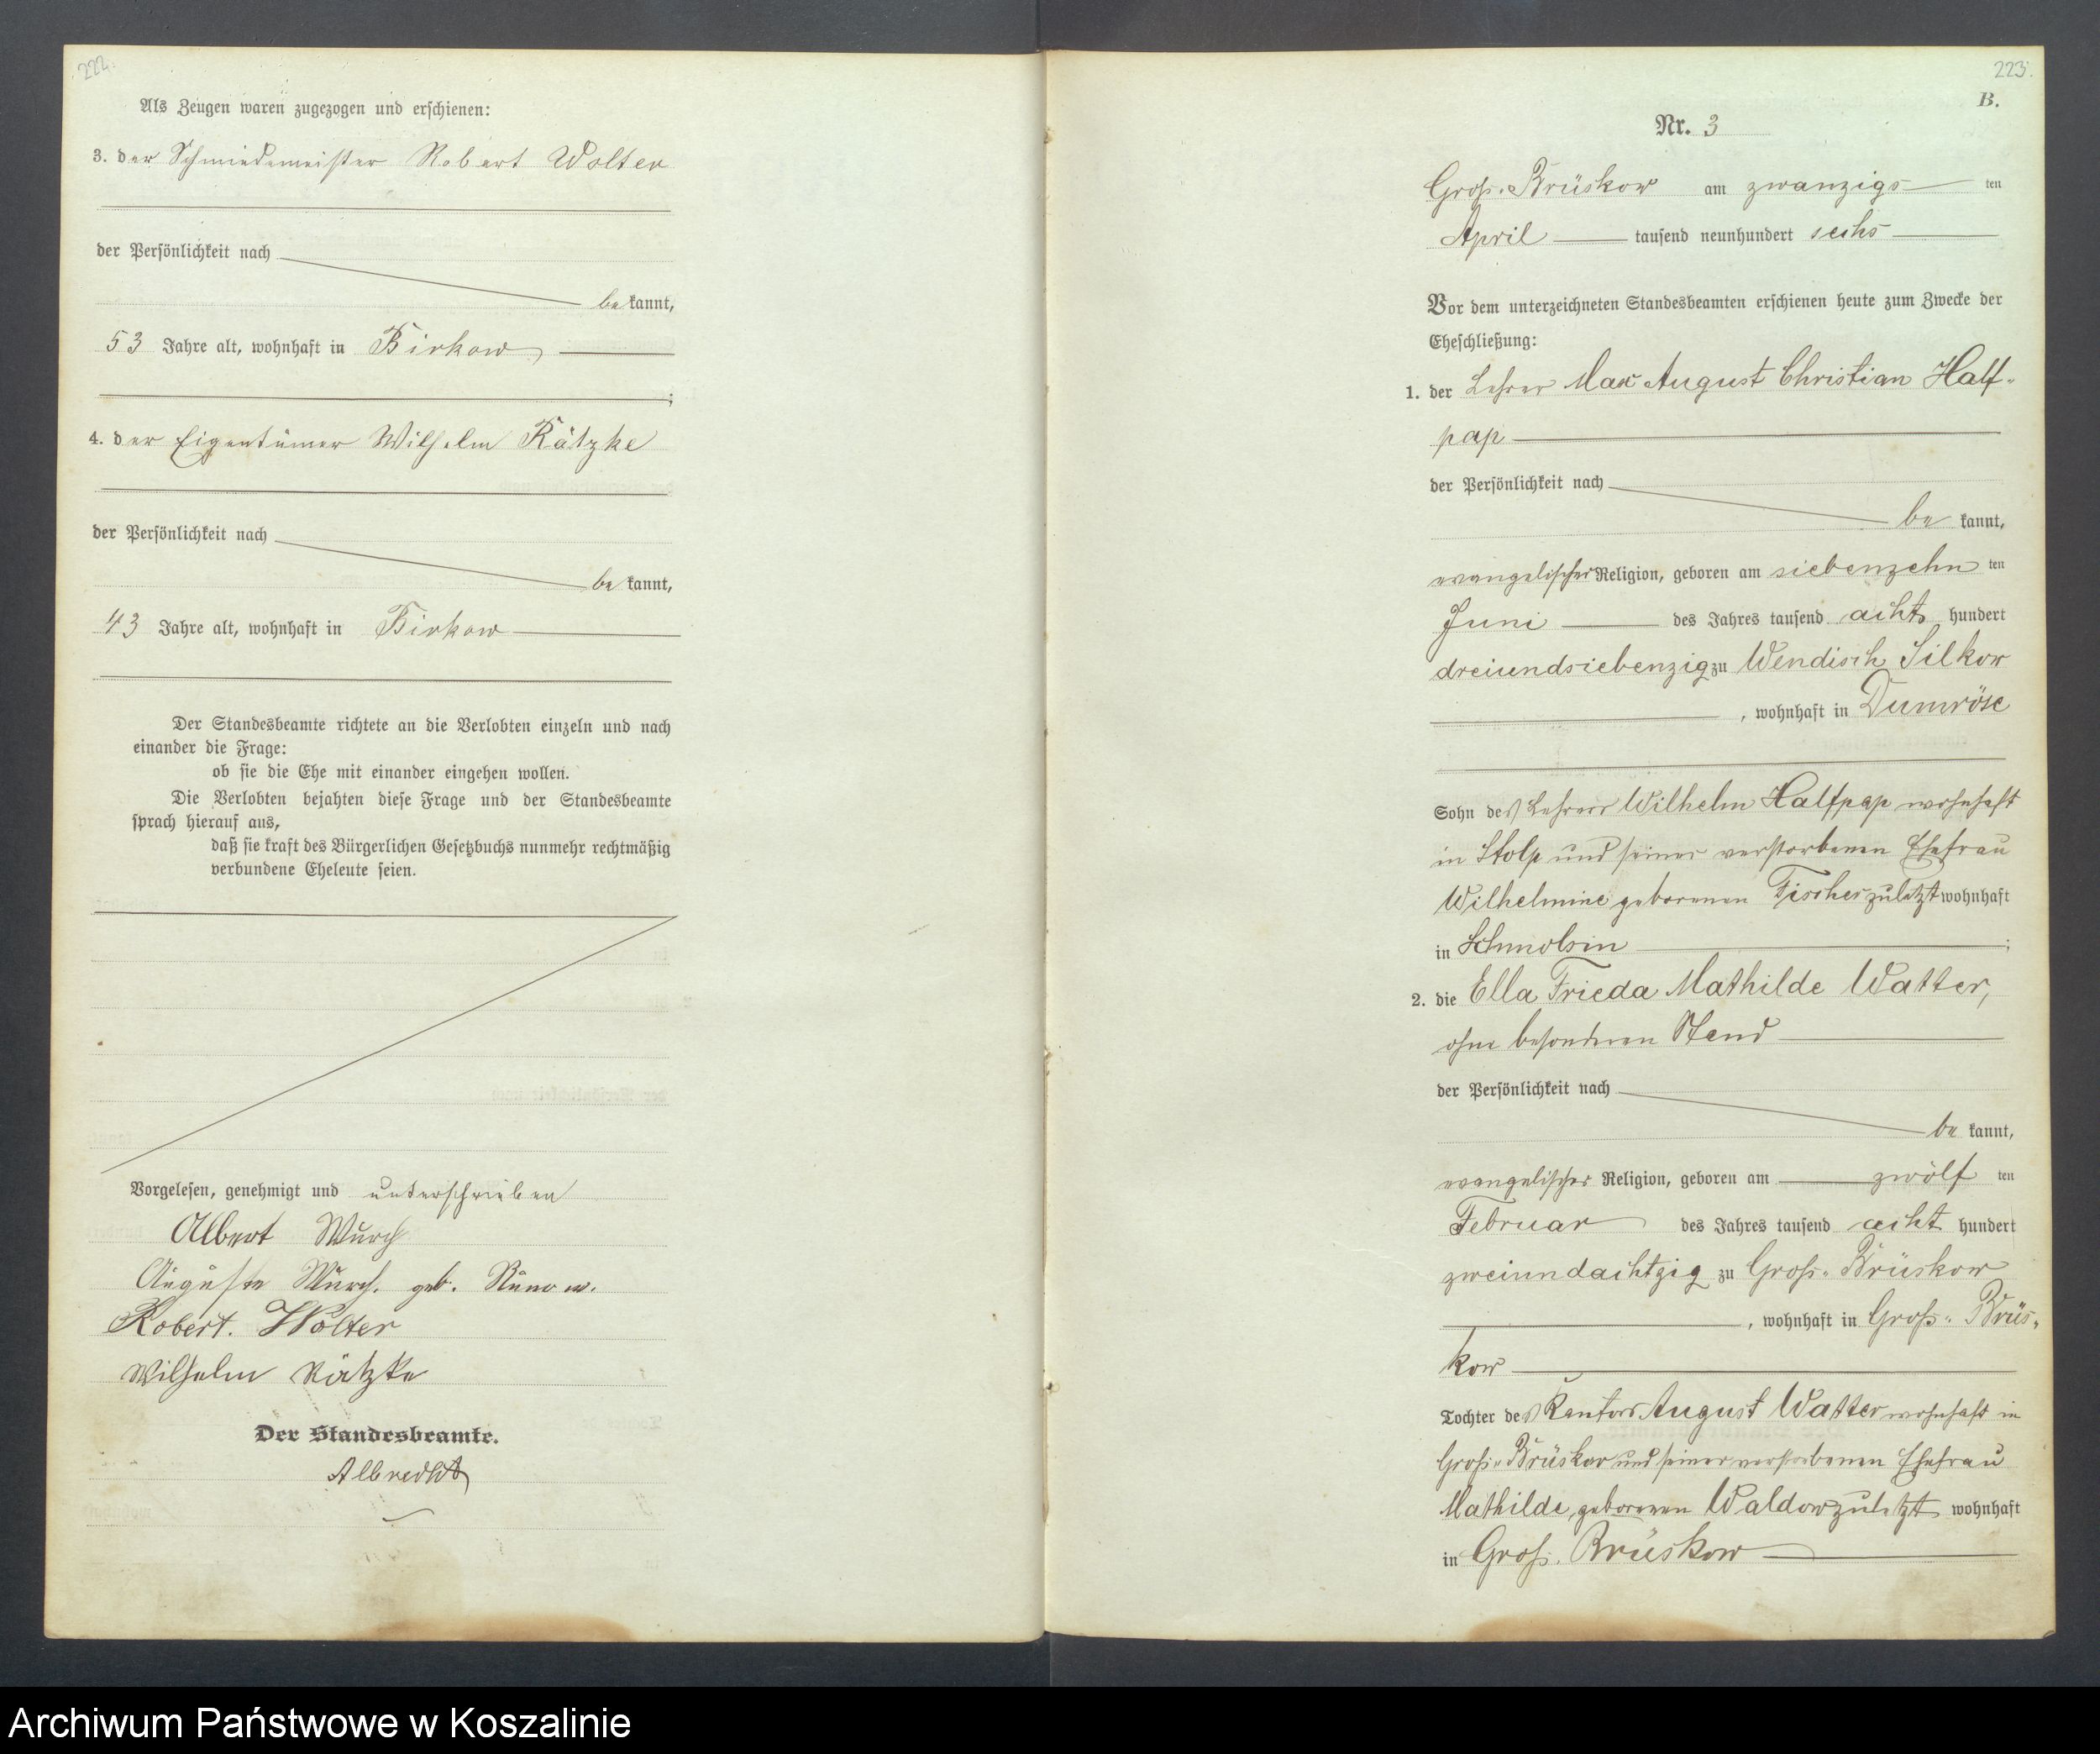 222.
Als Zeugen waren zugezogen und erschienen:
3. der Schmiedemeister Robert Wolter
der Persönlichkeit nach
bekannt,
53 Jahre alt, wohnhaft in Birkow
;
4. der Eigentümer Wilhelm Rätzke
der Persönlichkeit nach
bekannt,
43 Jahre alt, wohnhaft in Birkow
Der Standesbeamte richtete an die Verlobten einzeln und nach
einander die Frage:
ob sie die Ehe mit einander eingehen wollen.
Die Verlobten bejahten diese Frage und der Standesbeamte
sprach hierauf aus,
daß sie kraft des Bürgerlichen Gesetzbuchs nunmehr rechtmäßig
verbundene Eheleute seien.
Vorgelesen, genehmigt und unterschrieben
Albert Wurch
Auguste Wurch. geb.
Robert. Wolter
Wilhelm Rätzke
Der Standesbeamte.
Albrecht
223.
B.
Nr. 3
Groß-Brüskow am zwanzigsten
April tausend neunhundert sechs
Vor dem unterzeichneten Standesbeamten erschienen heute zum Zwecke der
Eheschließung:
1. der Lehrer Max August Christian Half-
pap
der Persönlichkeit nach
be kannt,
evangelischer Religion, geboren am siebenzehn ten
Juni des Jahres tausend acht hundert
dreiundsiebenzig zu Wendisch Silkow
, wohnhaft in Dumröse
Sohn des Lehrers Wilhelm Halfpap wohnhaft
in Stolp und seiner verstorbenen Ehefrau
Wilhelmine geborenen Fischer zuletzt wohnhaft
in Schmolsin ;
2. die Ella Frieda Mathilde Watter,
ohne besonderen Stand
der Persönlichkeit nach
be kannt,
evangelischer Religion, geboren am zwölf ten
Februar des Jahres tausend acht hundert
zweiundachtzig zu Groß-Brüskow
, wohnhaft in Groß-Brüs-
kow
Tochter des Kantors August Watter wohnhaft in
Groß-Brüskow und seiner verstorbenen Ehefrau
Mathilde, geborenen Waldow zuletzt wohnhaft
in Groß-Brüskow
Archiwum Państwowe w Koszalinie